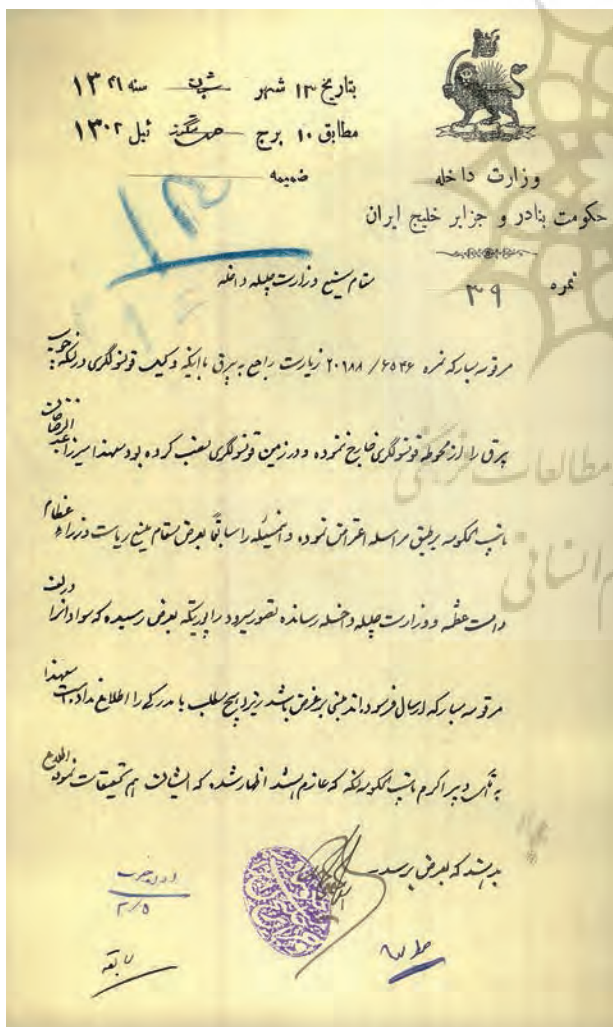 بتاریخ ۱۳ شهر شعبان سنه ۱۳۴۱
مطابق ۱۰ برج حمل تنگوز ئیل ۱۳۰۲
ضمیمه
وزارت داخله
حکومت بنادر و جزایر خلیج ایران
نمره ۳۹
مقام منیع وزارت جلیله داخله
مرقومه مبارکه نمره ۶۵۴۶ / ۲۰۱۸۸ زیارت راجع به بیرق با اینکه وکیل قونسولگری در لنگه چوب
بیرق را از محوطه قونسولگری خارج نموده و در زمین قونسولگری نصب کرده بود معهذا میرزا عبدالرضا خان
نایب الحکومه بر طبق مراسله اعتراض نموده و این مسئله را سابقاً بعرض مقام منیع ریاست وزراء عظام
دامت عظمته و وزارت جلیله داخله رسانده تصور میرود راپورتیکه بعرض رسیده که سواد آنرا در لف
مرقومه مبارکه ارسال فرموده‌اند مبنی بر غرض باشد زیرا هیچ مطلب با مدرکی را اطلاع نداده است معهذا
به آقای دبیر اکرم نایب الحکومه لنگه که عازم است اظهار شده که ایشان هم تحقیقات نموده اطلاع
بدهند که بعرض برسد
۲/۵
سابقه
مطالعات فرهنگی
م انسانی